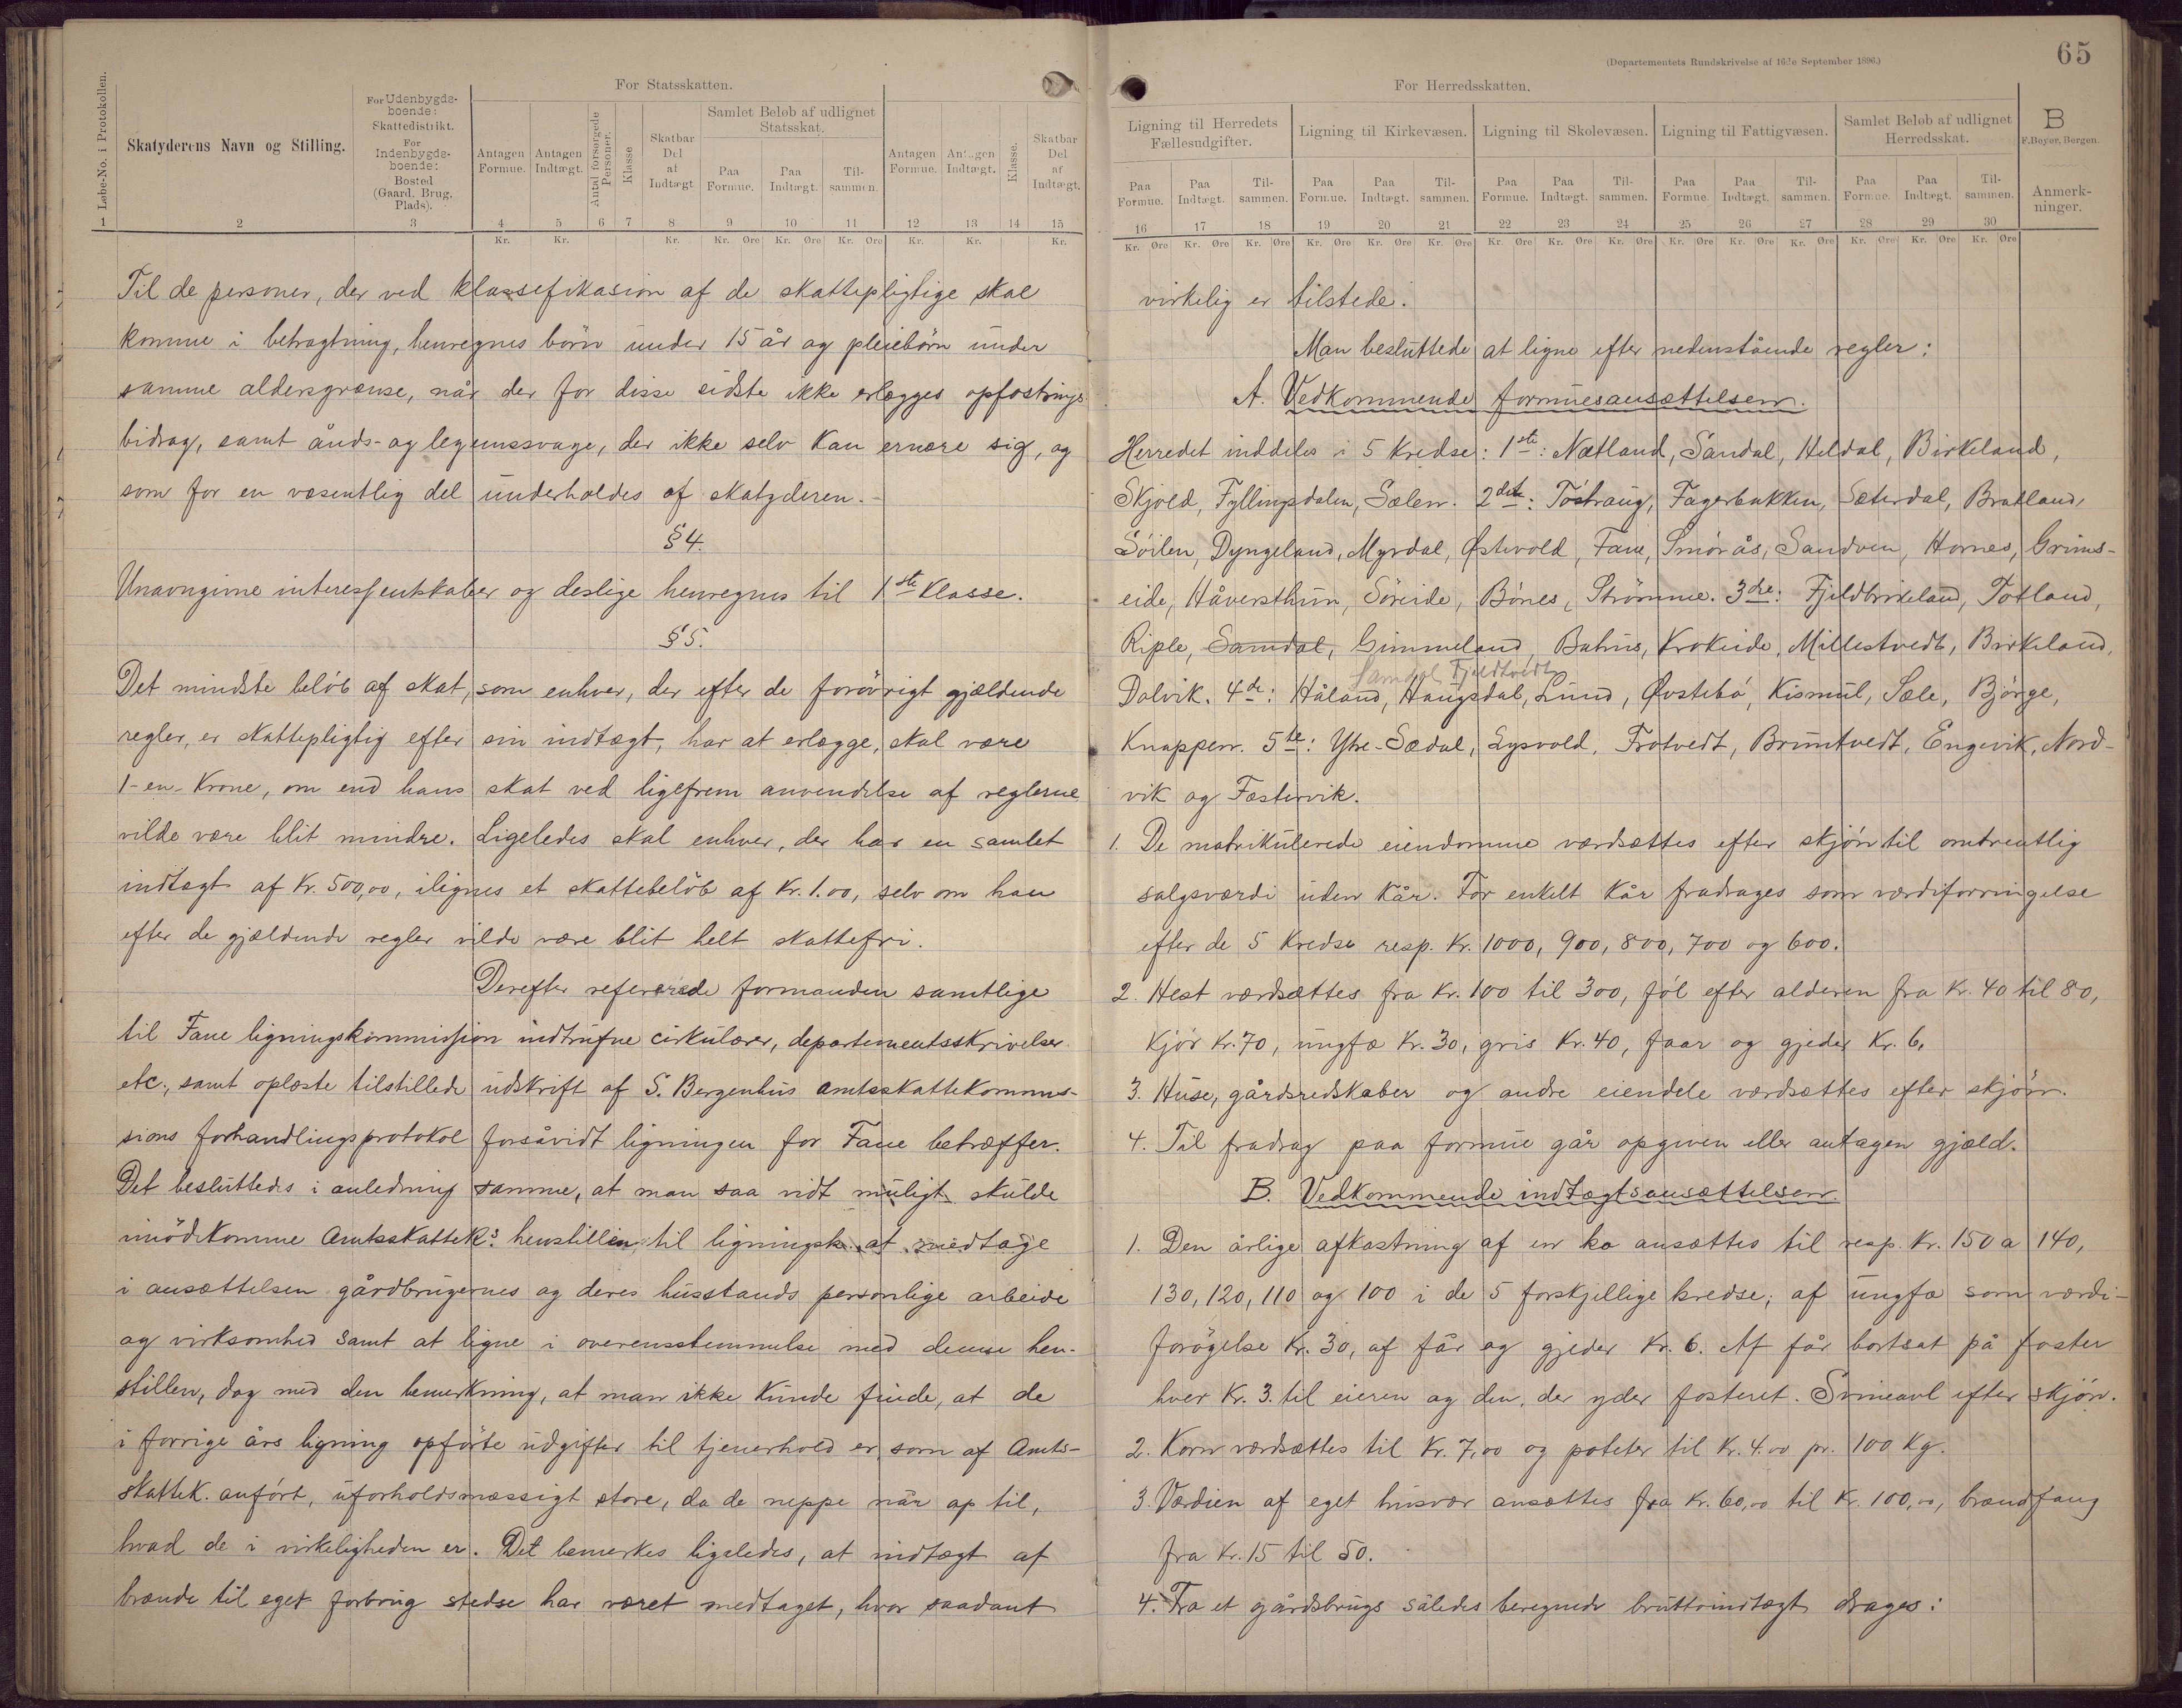 65
(Departementets Rundskrivelse af 16de September 1896.)
For Statsskatten.
For Herredsskatten.
Løbe-No. i Protokollen.
Skatyderens Navn og Stilling.
For Udenbygdsboende: Skattedistrikt. For Indenbygdsboende: Bosted (Gaard, Brug, Plads).
Antagen Formue.
Antagen Indtægt.
Antal forsørgede Personer.
Klasse
Skatbar Del af Indtægt
Samlet Beløb af udlignet Statsskat.
Paa Formue.
Paa Indtægt.
Tilsammen.
Antagen Formue.
Antagen Indtægt.
Klasse.
Skatbar Del af Indtægt.
Ligning til Herredets Fællesudgifter.
Ligning til Kirkevæsen.
Ligning til Skolevæsen.
Ligning til Fattigvæsen.
Samlet Beløb af udlignet Herredsskat.
B
F. Beyer, Bergen.
Paa Formue. Paa Indtægt. Tilsammen. Paa Formue. Paa Indtægt. Tilsammen. Paa Formue. Paa Indtægt. Tilsammen. Paa Formue. Paa Indtægt. Tilsammen. Paa Formue. Paa Indtægt. Tilsammen.
Anmerkninger.
1 2 3 4 5 6 7 8 9 10 11 12 13 14 15
16 17 18 19 20 21 22 23 24 25 26 27 28 29 30
Kr. Kr. Kr. Kr. Øre Kr. Øre Kr. Øre Kr. Kr. Kr.
Kr. Øre Kr. Øre Kr. Øre Kr. Øre Kr. Øre Kr. Øre Kr. Øre Kr. Øre Kr. Øre Kr. Øre Kr. Øre Kr. Øre Kr. Øre Kr. Øre Kr. Øre
Til de personer, der ved klassefikasion af de skattepligtige skal
komme i betragtning, henregnes børn under 15 år og pleiebørn under
samme aldersgrænse, når der for disse sidste ikke erlægges opfostrings
bidrag, samt ånds- og legemssvage, der ikke selv kan ernære sig, og
som for en væsentlig del underholdes af skatyderen.
§ 4.
Unavngivne interessentskaber og deslige henregnes til 1ste Klasse.
§ 5.
Det mindste beløb af skat, som enhver, der efter de forøvrigt gjældende
regler, er skattepligtig efter sin indtægt, har at erlægge, skal være
1-en-Krone, om end hans skat ved ligefrem anvendelse af reglerne
vilde være blit mindre. Ligeledes skal enhver, der har en samlet
indtægt af Kr. 500,00, ilignes et skattebeløb af Kr. 1.00, selv om han
efter de gjældende regler vilde være blit helt skattefri.
Derefter refererede formanden samtlige
til Fane ligningskommission indtrufne cirkulærer, departementsskrivelser
etc., samt oplæste tilstillede udskrift af S. Bergenhus amtsskattekommis-
sions forhandlingsprotokol forsåvidt ligningen for Fane betræffer.
Det besluttedes i anledning samme, at man saa vidt muligt skulde
imødekomme Amtsskattek.s henstillen til ligningsk. at medtage
i ansættelsen gårdbrugernes og deres husstands personlige arbeide
og virksomhed samt at ligne i overensstemmelse med denne hen-
stillen, dog med den bemerkning, at man ikke kunde finde, at de
i forrige års ligning opførte udgifter til tjenerhold er, som af Amts-
skattek. anført, uforholdsmæssigt store, da de neppe når op til,
hvad de i virkeligheden er. Det bemerkes ligeledes, at indtægt af
brænde til eget forbrug stedse har været medtaget, hvor saadant
virkelig er tilstede.
Man besluttede at ligne efter nedenstående regler:
A. Vedkommende formuesansættelsen.
Herredet inddeles i 5 Kredse: 1ste: Nætland, Sandal, Heldal, Birkeland,
Skjold, Fyllingsdalen, Sælen. 2den: Tostraug, Fagerbakken, Sæterdal, Bratland,
Søilen, Dyngeland, Myrdal, Østevold, Fane, Smørås, Sandven, Hornes, Grims-
eide, Håversthun, Søreide, Bönes, Strömme. 3dre: Fjeldbirkeland, Totland,
Riple, Samdal, Gimmeland, Bahus, Krokeide, Millestvedt, Birkeland,
Samdal Fjeldtvedt
Dalvik. 4de: Håland, Haugsdal, Lund, Øvstebö, Kismul, Sæle, Bjørge,
Knappen. 5te: Ytre-Sædal, Lysvold, Frotvedt, Bruntvedt, Engevik, Nord-
vik og Fæstervik.
1. De matrikulerede eiendomme værdsættes efter skjön til omtrentlig
salgsværdi uden kår. For enkelt kår fradrages som værdiforringelse
efter de 5 Kredse resp. Kr. 1000, 900, 800, 700 og 600.
2. Hest værdsættes fra Kr. 100 til 300, föl efter alderen fra Kr. 40 til 80,
kjör Kr. 70, ungfæ Kr. 30, gris Kr. 40, faar og gjeder Kr. 6.
3. Huse, gårdsredskaber og andre eiendele værdsættes efter skjön.
4. Til fradrag paa formue går opgiven eller antagen gjæld.
B. Vedkommende indtægtsansættelsen.
1. Den årlige afkastning af en ko ansættes til resp. Kr. 150 a 140,
130, 120, 110 og 100 i de 5 forskjellige kredse; af ungfæ som værdi-
forögelse Kr. 30, af får og gjeder Kr. 6. Af får bortsat på foster
hver Kr. 3. til eieren og den, der yder fosteret. Svineavl efter skjön.
2. Korn værdsættes til Kr. 7,00 og poteter til Kr. 4.00 pr. 100 Kg.
3. Værdien af eget husvær ansættes fra Kr. 60,00 til Kr. 100,00, brændfang
fra Kr. 15 til 50.
4. Fra et gårdsbrugs således beregnede bruttoindtægt drages: